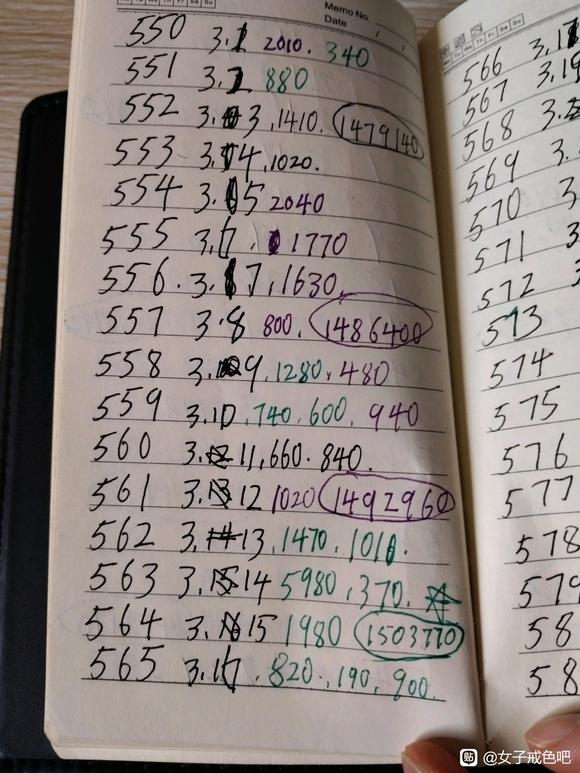 Memo No.
Date / /
550 3.1 2010. 340
551 3.2 880
552 3.3, 1410. 1479140
553 3.4, 1020.
554 3.5 2040
555 3. 1770
556. 3.7, 1630.
557 3.8 800. 1486400
558 3.9, 1280, 480
559 3.10, 740, 600, 940
560 3.11, 660. 840.
561 3.12 1020 1492960
562 3.13, 1470, 101
563 3.14 5980, 370.
564 3.15 1980 1503770
565 3.1 . 820., 190, 900.
566 3.1
567 3.19
568 3.
569 3.
570 3
571 3
572 3
573
574
575
576
577
578
579
58
58
贴 @女子戒色吧